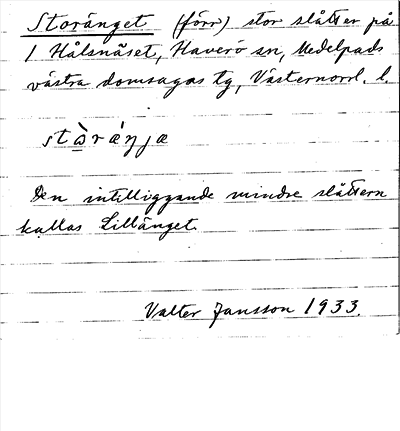 Storänget (förr) stor slåtter på
1 Hålsnäset, Haverö sn, Medelpads
västra domsagas tg, Västernorrl. l.
stɑ̀ràŋjæ
Den intilliggande mindre slåttern
kallas Lillänget.
Valter Jansson 1933.